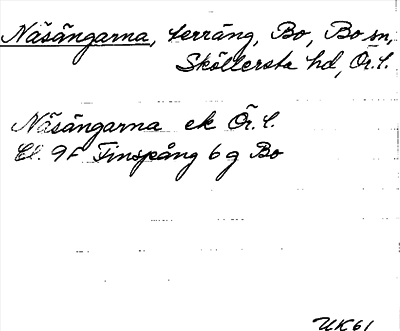 Näsängarna, terräng, Bo, Bo sn,
Sköllersta hd, Ör. l.
Näsängarna ek Ör. l.
Bl. 9F Finspång 6 g Bo
UK61